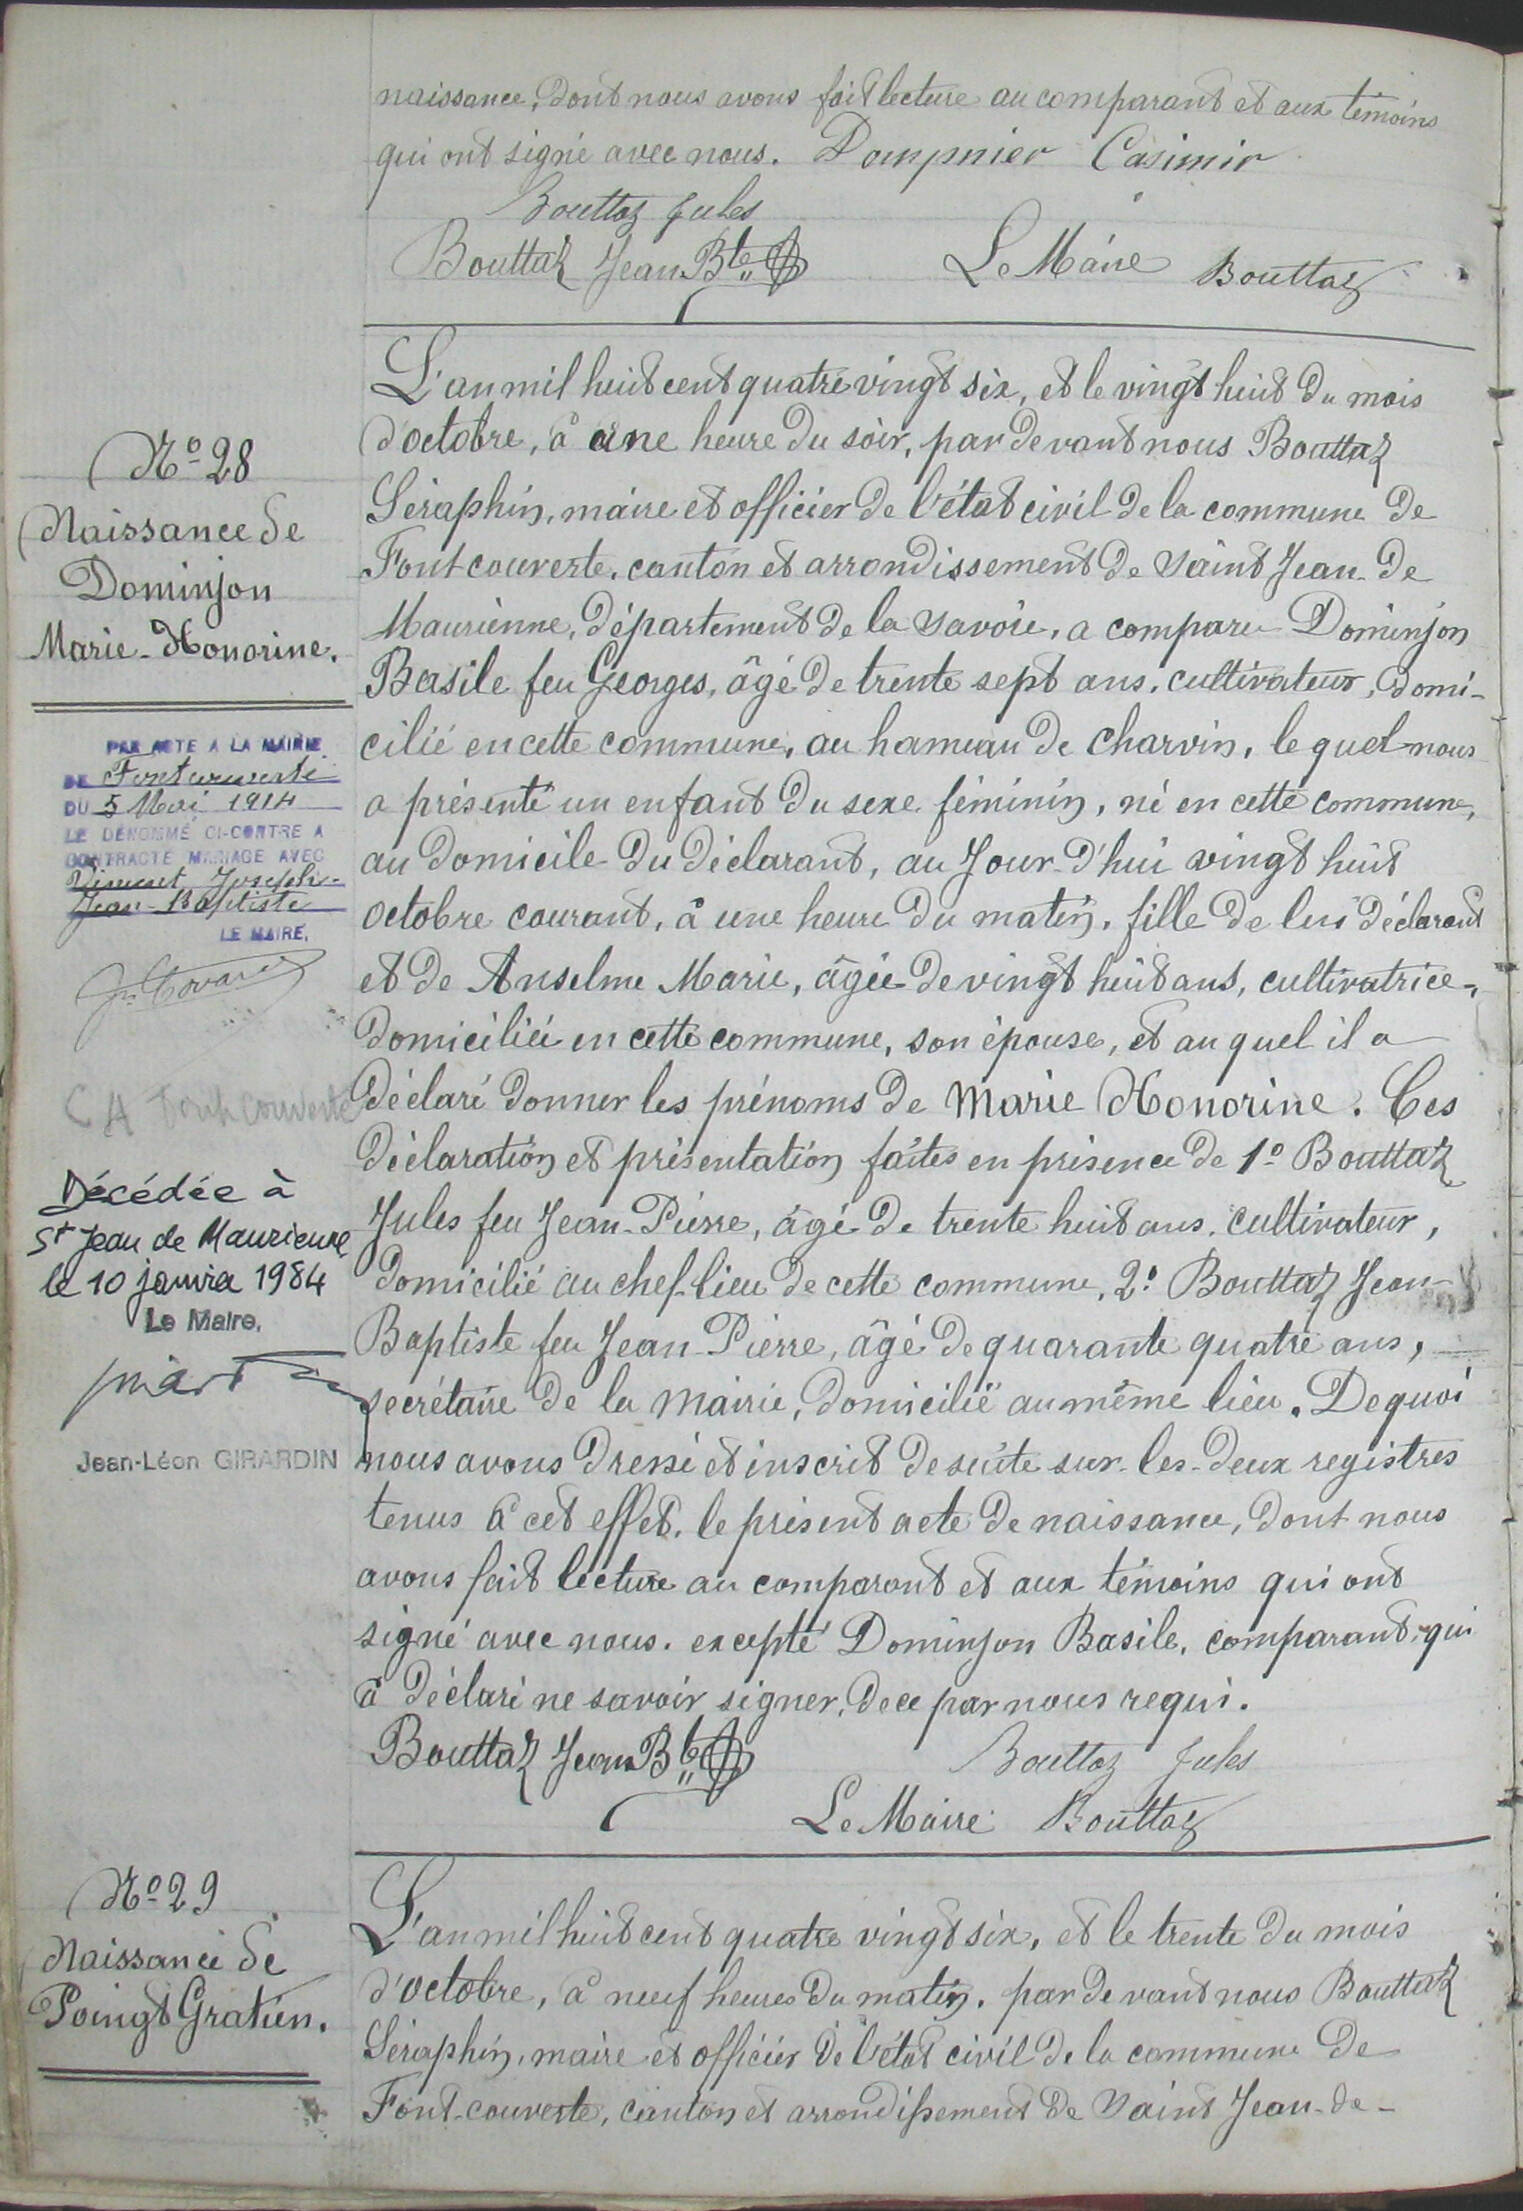 naissance, dont nous avons fait lecture au comparant et aux témoins
qui ont signé avec nous. Dompnier Casimir
Bouttaz Jules
Bouttaz Jean Bte Le Maire Bouttaz
N° 28
Naissance de
Dominjon
Marie-Honorine.
L'an mil huit cent quatre vingt six, et le vingt huit du mois
d'octobre, à une heure du soir, par devant nous Bouttaz
Séraphin, maire et officier de l'état civil de la commune de
Fontcouverte, canton et arrondissement de Saint Jean de
Maurienne, département de la Savoie, a comparu Dominjon
Basile feu Georges, âgé de trente sept ans, cultivateur, domi-
cilié en cette commune, au hameau de Charvin, le quel nous
a présenté un enfant du sexe féminin, né en cette commune,
au domicile du déclarant, au Jour-d'hui vingt huit
octobre courant, à une heure du matin, fille de lui déclarant
et de Anselme Marie, âgée de vingt huit ans, cultivatrice,
domiciliée en cette commune, son épouse, et au quel il a
déclaré donner les prénoms de Marie Honorine. Ces
déclaration et présentation faites en présence de 1° Bouttaz
Jules feu Jean-Pierre, âgé de trente huit ans, cultivateur,
domicilié au chef-lieu de cette commune, 2° Bouttaz Jean-
Baptiste feu Jean-Pierre, âgé de quarante quatre ans,
secrétaire de la Mairie, domicilié au même lieu. De quoi
nous avons dressé et inscrit de suite sur les deux registres
tenus à cet effet, le présent acte de naissance, dont nous
avons fait lecture au comparant et aux témoins qui ont
signé avec nous. excepté Dominjon Basile, comparant, qui
à déclaré ne savoir signer, de ce par nous requi.
Bouttaz Jean Bte Bouttaz Jules
Le Maire Bouttaz
PAR ACTE A LA MAIRIE
DE Fontcouverte
DU 5 Mai 1914
LE DÉNOMMÉ CI-CONTRE A
CONTRACTÉ MARIAGE AVEC
Vincent Joseph-
Jean-Baptiste
LE MAIRE,
CA Fontcouverte
Décédée à
St Jean de Maurienne
le 10 janvier 1984
Le Maire,
Jean-Léon GIRARDIN
N° 29
Naissance de
Poingt Gratien.
L'an mil huit cent quatre vingt six, et le trente du mois
d'octobre, à neuf heures du matin, par devant nous Bouttaz
Séraphin, maire et officier de l'état civil de la commune de
Font-couverte, canton et arrondissement de Saint Jean-de-